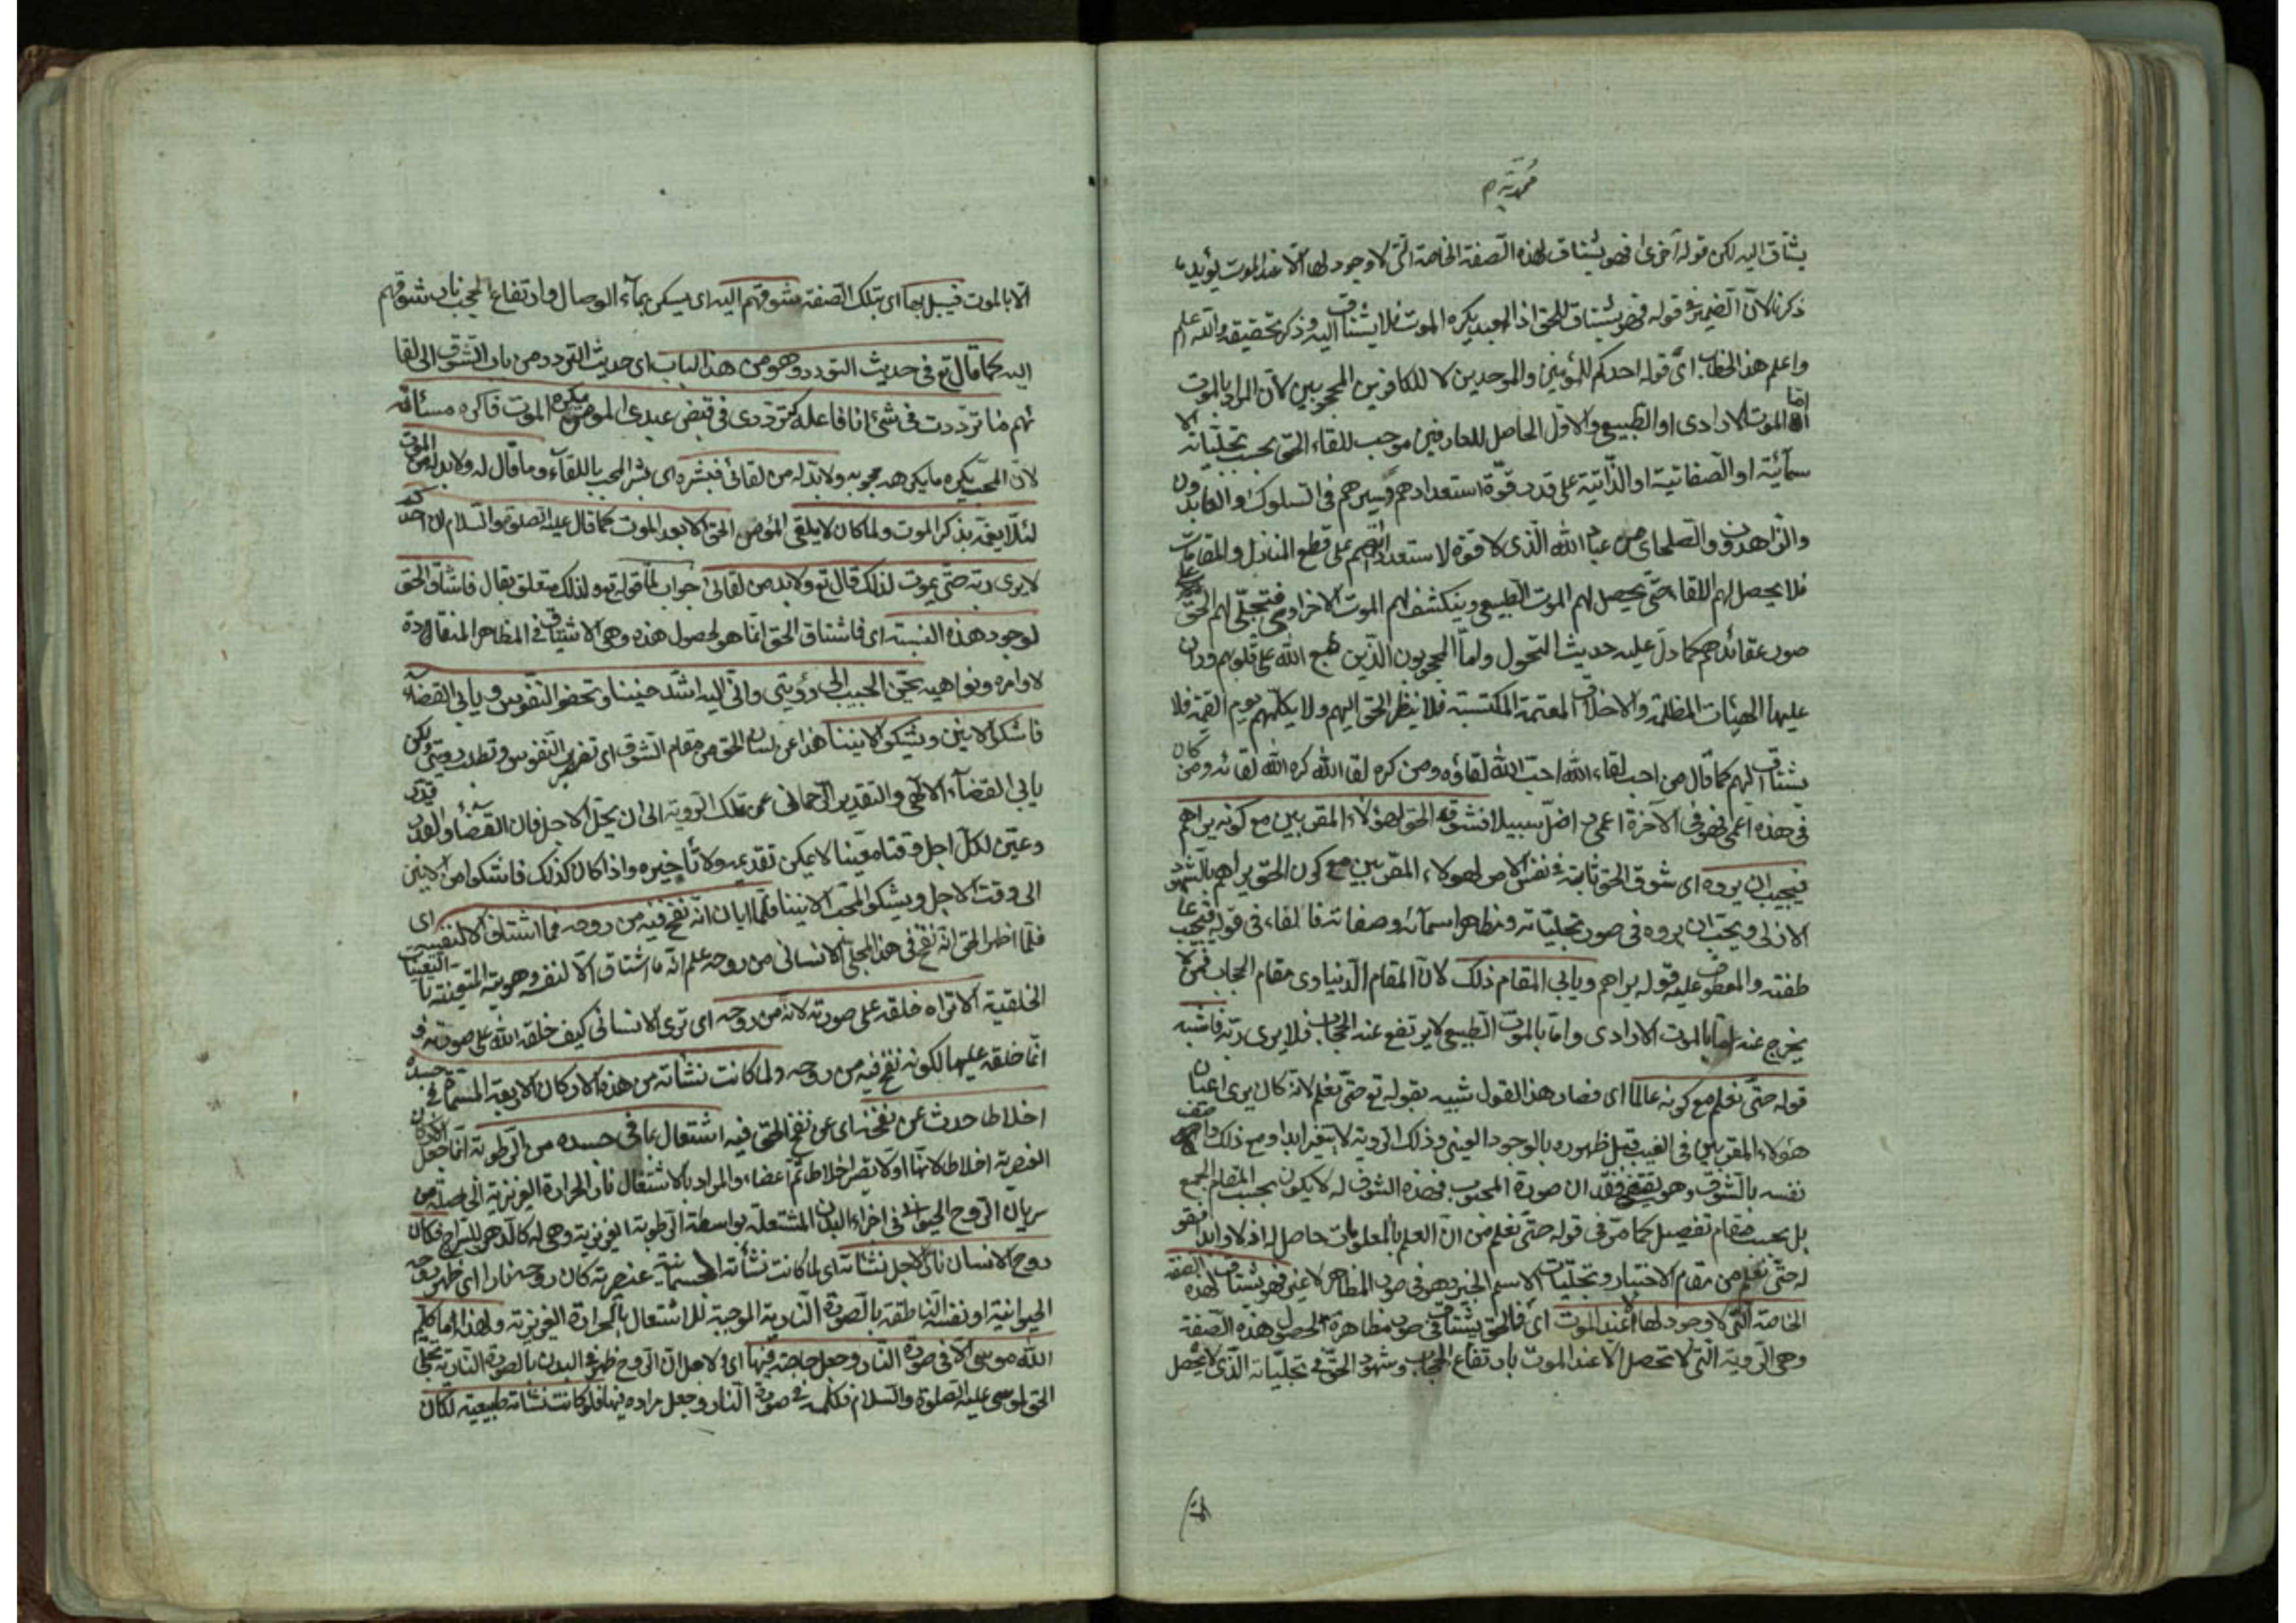 محمدية م
يشتاق اليه لكن قوله اخرى فهو يشتاق لهذه الصفة الخاصة التى لا وجود لها الا عند الموت يؤيد ما
ذكرنا لان الضمير فى قوله فهو يشتاق للحق اذ العبد يكره الموت فلا يشتاق اليه وذكر تحقيقه والله اعلم
واعلم هذا الخطاب اى قوله احدكم للمؤمنين والموحدين لا للكافرين المحجوبين لان المراد بالموت
اما الموت الارادى او الطبيعى والاول الحاصل للعارفين موجب للقاء الحق بحسب تجلياته الا
سمآئية او الصفاتية او الذاتية على قدر قوة استعدادهم وسيرهم فى السلوك والعابدون
والزاهدون والصلحاى من عباد الله الذى لا قوة لاستعدادهم على قطع المنازل والمقامات
فلا يحصل لهم اللقاء حتى يحصل لهم الموت الطبيعى وينكشف لهم الموت الاخراوى فتجلى لهم الحق على
صور عقائدهم كما دل عليه حديث التحول واما المحجوبون الذين طبع الله على قلوبهم وران
عليها الهيئات المظلمة والاخلاق المعتمة المكتسبة فلا ينظر الحق اليهم ولا يكلمهم يوم القيمة فلا
يشتاق الهم كما قال من احب لقاء الله احب الله لقاؤه ومن كره لقا الله كره الله لقائه ومن كان
فى هذه اعمى فهو فى الآخرة اعمى واضل سبيلا فشوق الحق لهؤلاء المقربين مع كونه يراهم
فيحب ان يروه اى شوق الحق ثابتة فى نفس الامر لهولاء المقربين مع كون الحق يراهم بالشهود
الازلى ويحب ان يروه فى صور تجلياته ومظاهر اسمآئه وصفاته فالفاء فى قوله فيحب عا
طفته والمعطوف عليه قوله يراهم ويابى المقام ذلك لان المقام الدنياوى مقام الحجاب فمن لا
يخرج عنه اما بالموت الارادى واما بالموت الطبيعى لا يرتفع عنه الحجاب فلا يرى ربه فاشبه
قوله حتى نعلم مع كونه عالما اى فصار هذا القول شبيه بقوله تع حتى نعلم لانه كان يرى اعيان
هؤلاء المقربين فى الغيب قبل ظهوره بالوجود العينى وذلك الروية لا يتغير ابدا ومع ذلك وصف
نفسه بالشوق وهو يقتضى فقدان صورة المحبوب فهذه الشوق له لا يكون بحسب المقام الجمع
بل بحسب مقام تفصيل كما مر فى قوله حتى نعلم من ان العلم بالمعلومات حاصل له ازلا وابدا فقو
له حتى نعلم من مقام الاختبار وتجليات الاسم الخبير وهو فى صور المظاهر لا غير فهو يشتاق لهذه الصفة
الخاصة التى لا وجود لها الا عند الموت اى فالحق يشتاق فى صور مظاهره لحصول هذه الصفة
وهى الروية التى لا تحصل الا عند الموت بارتفاع الحجاب وشهود الحق فى تجلياته الذى لا يحصل
الا بالموت فيبل بها اى بتلك الصفة شوقهم اليه اى يسكن بمآء الوصال وارتفاع الحجب نار شوقهم
اليه كما قال تع فى حديث التردد وهو من هذا الباب اى حديث التردد من باب الشوق الى لقا
ئهم ما ترددت فى شئ انا فاعله كترددى فى قبض عبدى المومن يكره الموت فاكره مسائته
لان المحب يكره ما يكرهه محبوبه ولا بد له من لقائى فبشره اى بشر المحب باللقآء وما قال له ولا بد له من الموت
لئلا يغمه بذكر الموت ولما كان لا يلقى المؤمن الحق الا بعد الموت كما قال عليه الصلوة والسلام ان احدكم
لا يرى ربه حتى يموت لذلك قال تع ولا بد من لقائى جواب لما قوله تع ولذلك متعلق بقال فاشتاق الحق
لوجود هذه النسبة اى فاشتاق الحق انما هو لحصول هذه وهى الاشتياق فى المظاهر المنقادة
لاوامره ونواهيه يحن الحبيب الى رؤيتى وانى اليه اشد حنينا وتهفو النفوس ويابى القضآء
فاشكو الانين ويشكو الانينا هذا عن لسان الحق من مقام الشوق اى تضرب النفوس وتطلب رويتى ولكن
يابى القضآء الالهى والتقدير الرحمانى عن تلك الروية الى ان يحل الاجل فان القضآء والقدر قدر
وعين لكل اجل وقتا معينا لا يمكن تقديمه ولا تاخيره واذا كان كذلك فاشكوا من الانين
الى وقت الاجل ويشكو المحب الانينا فلما ابان انه نفخ فيه من روحه فما اشتاق الا لنفسه اى
فلما اظهر الحق انه نفخ فى هذا المجلى الانسانى من روحه علم انه ما اشتاق الا لنفسه وهويته المتعينة با التعينات
الخلقية الا تراه خلقه على صورته لانه من روحه اى ترى الانسانى كيف خلقه الله على صورته و
انما خلقه عليها لكونه نفخ فيه من روحه ولما كانت نشاته من هذه الاركان الاربعة المسماة فى جسده
اخلاطا حدث عن نفخه اى عن نفخ الحق فيه اشتعال بما فى جسده من الرطوبة انما جعل الاركان
العنصرية اخلاطا لانها اولا تصير اخلاطا ثم اعضاء والمراد بالاشتعال نار الحرارة الغريزية الحاصلة من
سريان الروح الحيوانى فى اجزاء البدن المشتعلة بواسطة الرطوبة الغريزية وهى له كالدهن للسراج فكان
روح الانسان نارا لاجل نشاته اى لما كانت نشأته الجسمانية عنصرية كان روحه نارا اى ظهر روحه
الحيوانية او نفسه الناطقة بالصورة النارية الموجبة للاشتعال بالحرارة الغريزية ولهذا ما كلم
الله موسى الا فى صورة النار وجعل حاجته فيها اى ولاجل ان الروح ظهر فى البدن بالصورة النارية تجلى
الحق لموسى عليه الصلوة والسلام فكلمه فى صورة النار وجعل مراده فيها فلو كانت نشاته طبيعية لكان